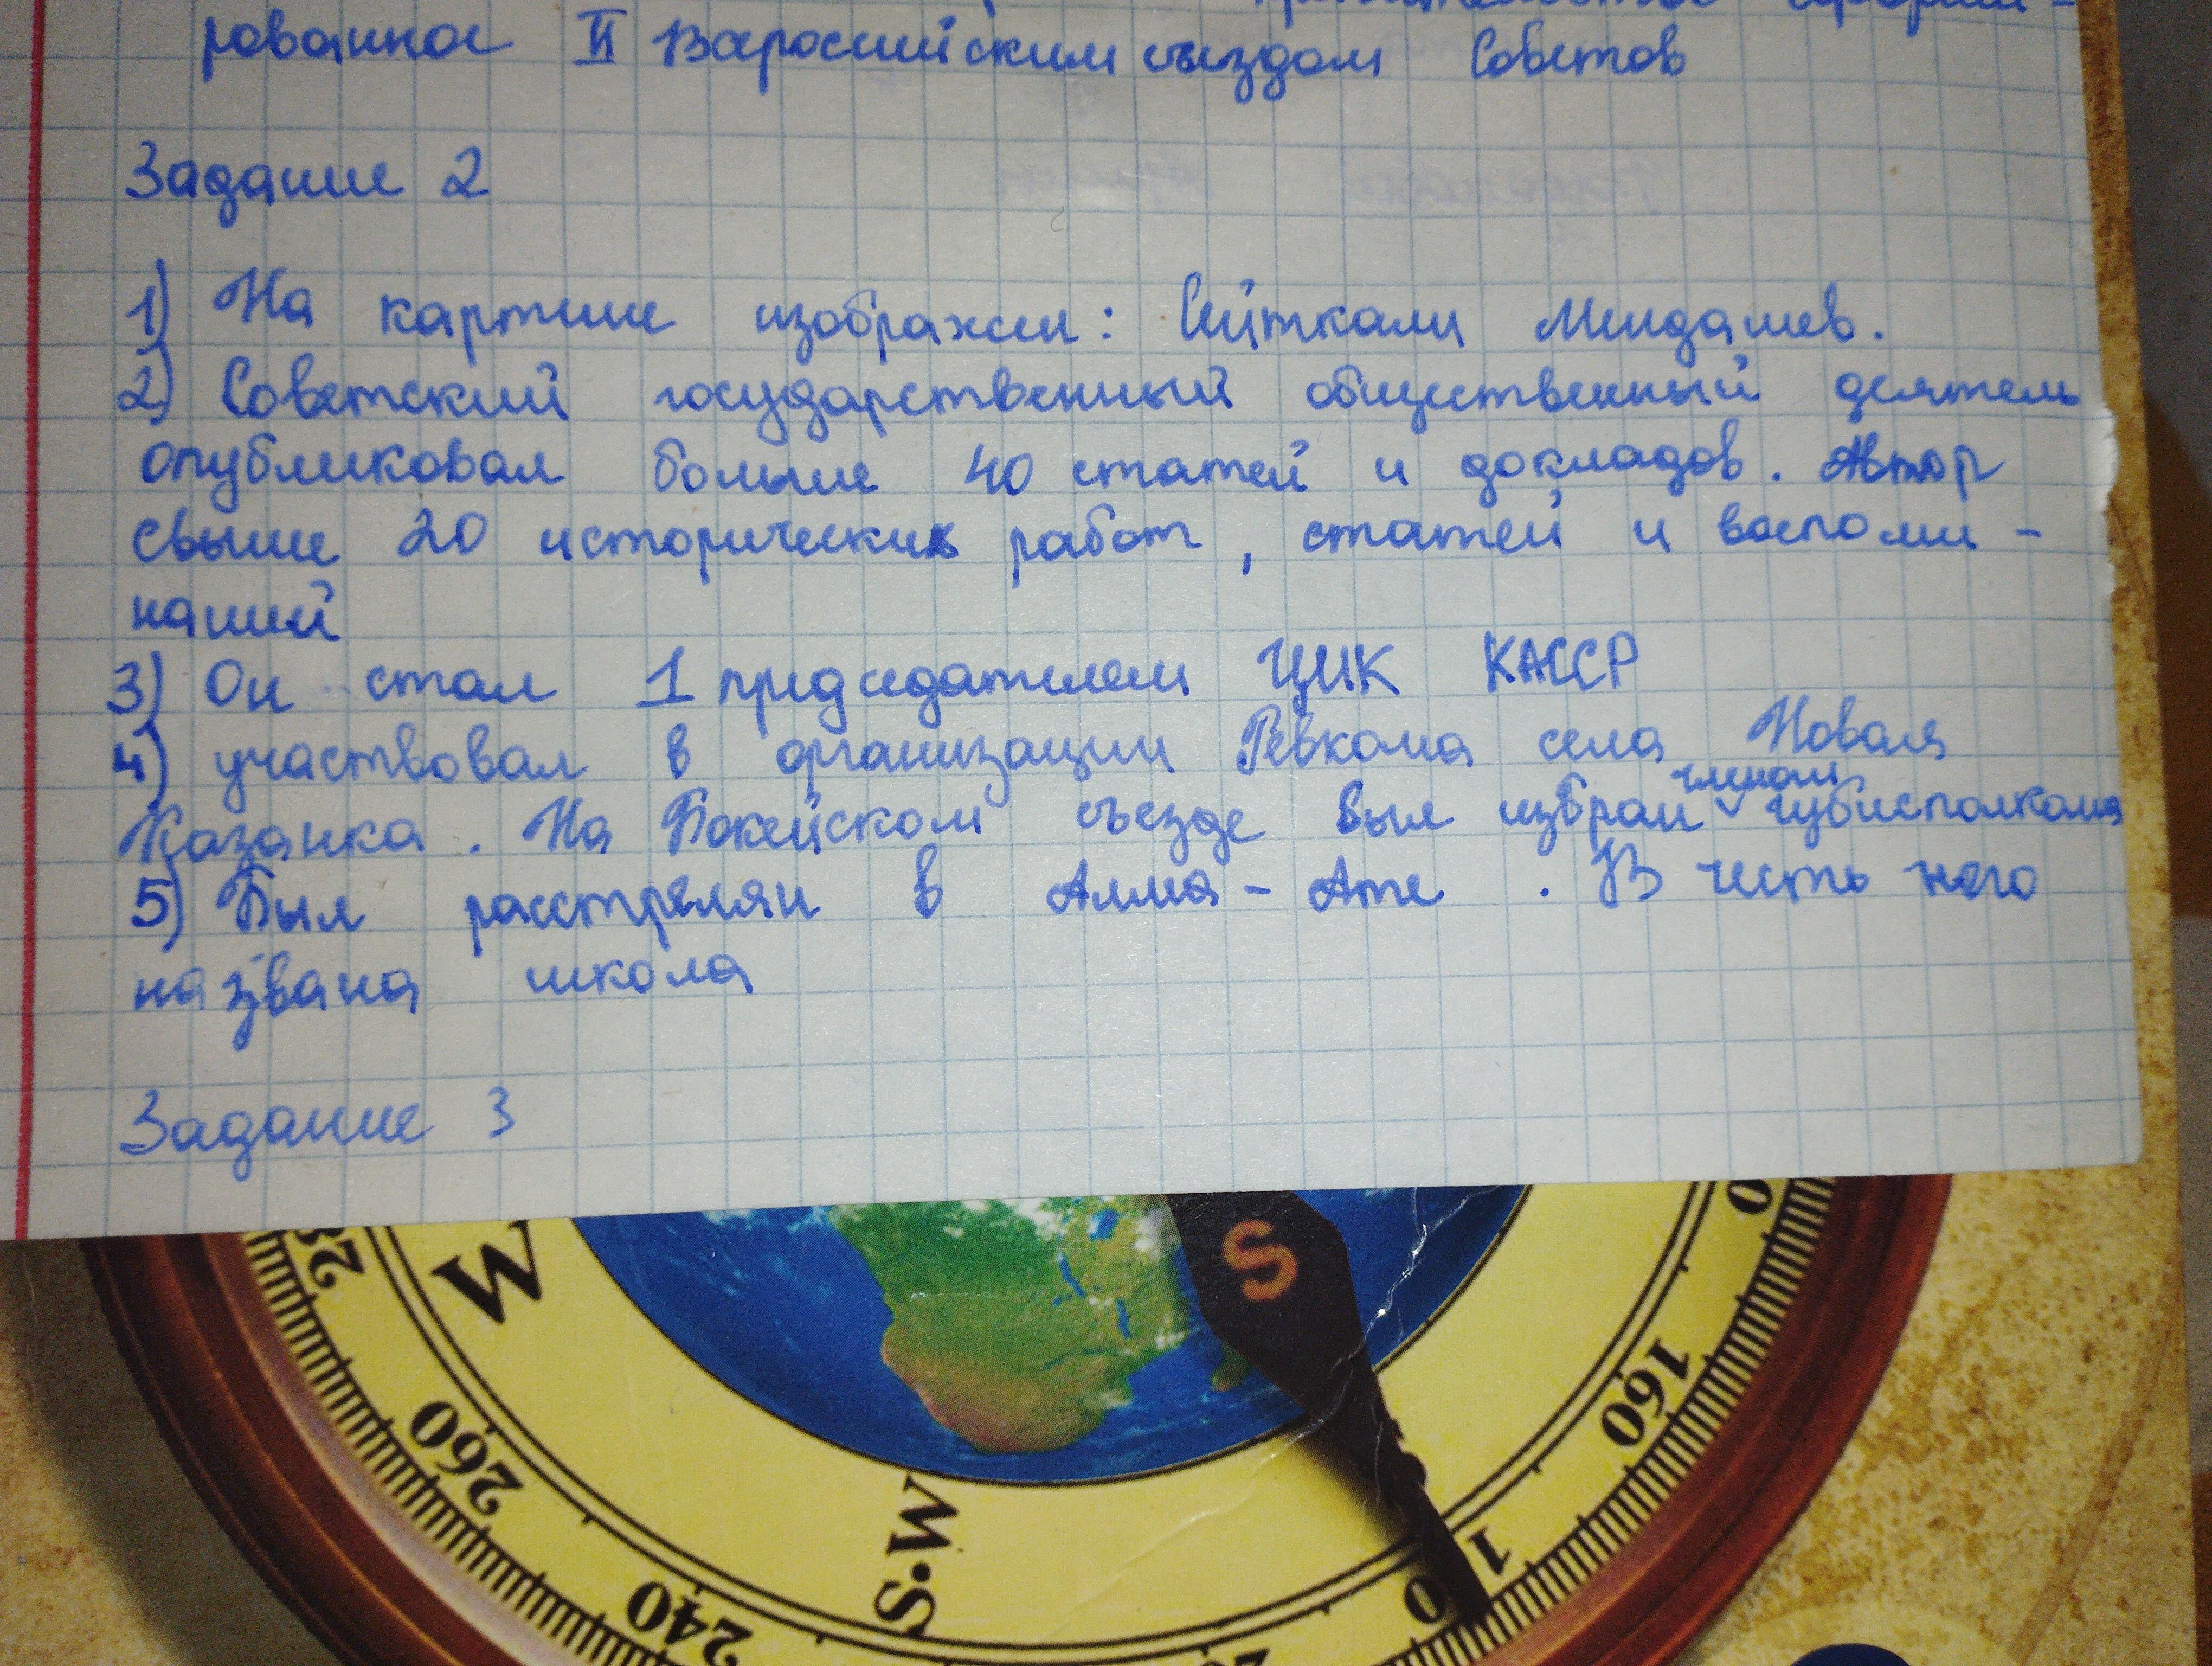 рованное II Всероссийским съездом Советов
Задание 2
1) На картине изображен: Сейткали Мендашев.
2) Советский государственный общественный деятель
опубликовал больше 40 статей и докладов. Автор
свыше 20 исторических работ, статей и воспоми-
наний
3) Он стал 1 председателем ЦИК КАССР
4) участвовал в организации Ревкома села Новая
Казанка. На Бокейском съезде был избран членом губисполкома
5) Был расстрелян в Алма-Ате. В честь него
названа школа
Задание 3
W
S
260
S.W
240
160
1
0
0